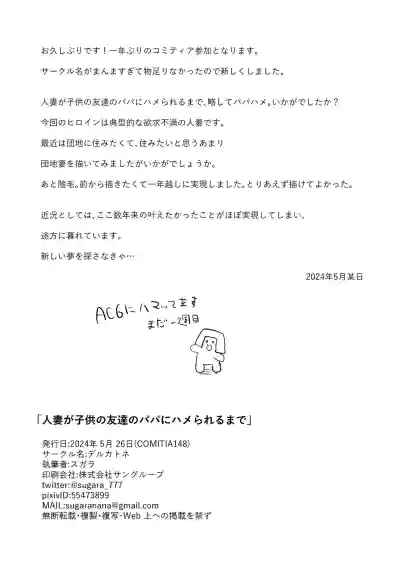 お久しぶりです！一年ぶりのコミティア参加となります。
サークル名がまんますぎて物足りなかったので新しくしました。
人妻が子供の友達のパパにハメられるまで、略してパパハメ。いかがでしたか？
今回のヒロインは典型的な欲求不満の人妻です。
最近は団地に住みたくて、住みたいと思うあまり
団地妻を描いてみましたがいかがでしょうか。
あと陰毛。前から描きたくて一年越しに実現しました。とりあえず描けてよかった。
近況としては、ここ数年来の叶えたかったことがほぼ実現してしまい、
途方に暮れています。
新しい夢を探さなきゃ…
2024年5月某日
AC6にハマってます
まだ一週目
「人妻が子供の友達のパパにハメられるまで」
発行日:2024年 5月 26日(COMITIA148)
サークル名:デルカトネ
執筆者:スガラ
印刷会社:株式会社サングループ
twitter:@sugara_777
pixivID:55473899
MAIL:sugaranana@gmail.com
無断転載・複製・複写・Web 上への掲載を禁ず